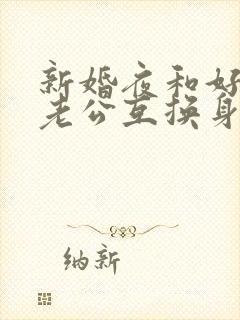 新婚夜和好
老公互换身
纳新